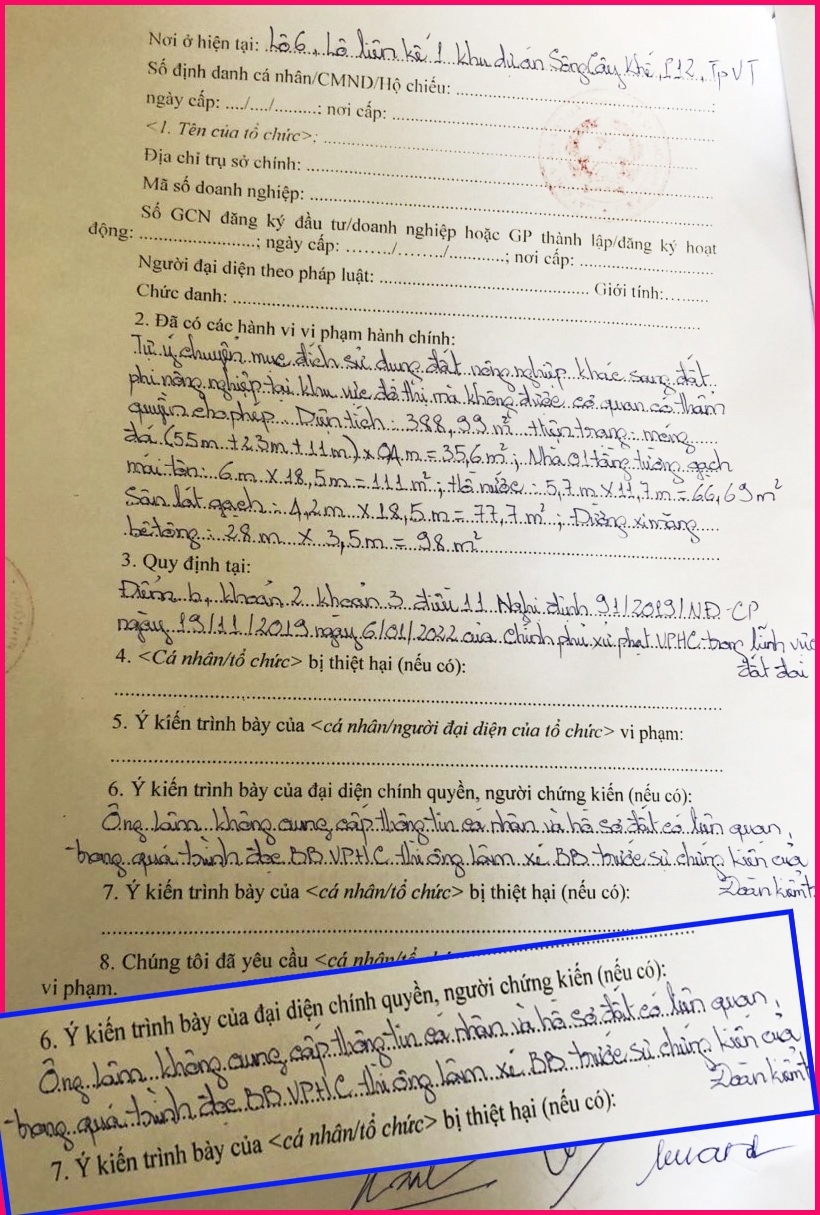 Nơi ở hiện tại: Lô 6, Lô liền kề 1 khu dự án Sông Cây Khế, P12, TpVT
Số định danh cá nhân/CMND/Hộ chiếu: ........................................;
ngày cấp: ..../..../.........: nơi cấp: ........................................
<1. Tên của tổ chức>: ........................................
Địa chỉ trụ sở chính: ........................................
Mã số doanh nghiệp: ........................................
Số GCN đăng ký đầu tư/doanh nghiệp hoặc GP thành lập/đăng ký hoạt
động: ......................; ngày cấp: ......../......../..........; nơi cấp: ......................
Người đại diện theo pháp luật: ........................................ Giới tính:.........
Chức danh: ........................................
2. Đã có các hành vi vi phạm hành chính:
Tự ý chuyển mục đích sử dụng đất nông nghiệp khác sang đất
phi nông nghiệp tại khu vực đô thị mà không được cơ quan có thẩm
quyền cho phép. Diện tích: 388,99 m² thiện trang: móng
đá (55m + 23m + 11m) x 0,4 m = 35,6 m²; Nhà 01 tầng tường gạch
mái tôn: 6 m x 18,5m = 111 m²; Hồ nước: 5,7 m x 11,7 m = 66,69 m²
Sân lát gạch: 4,2 m x 18,5 m = 77,7 m²; Đường xi măng
bê tông: 28 m x 3,5 m = 98 m²
3. Quy định tại:
Điểm b, khoản 2 khoản 3 điều 11 Nghị định 91/2019/NĐ-CP
ngày 19/11/2019 ngày 6/01/2022 của chính phủ xử phạt VPHC trong lĩnh vực
đất đai
4. <Cá nhân/tổ chức> bị thiệt hại (nếu có):
5. Ý kiến trình bày của <cá nhân/người đại diện của tổ chức> vi phạm:
6. Ý kiến trình bày của đại diện chính quyền, người chứng kiến (nếu có):
Ông Lâm không cung cấp thông tin cá nhân và hồ sơ đất có liên quan,
trong quá trình đọc BB VPHC thì ông Lâm xé BB trước sự chứng kiến của
Đoàn kiểm t
7. Ý kiến trình bày của <cá nhân/tổ chức> bị thiệt hại (nếu có):
8. Chúng tôi đã yêu cầu <cá nhân/tổ
vi phạm.
6. Ý kiến trình bày của đại diện chính quyền, người chứng kiến (nếu có):
Ông Lâm không cung cấp thông tin cá nhân và hồ sơ đất có liên quan,
trong quá trình đọc BB VPHC thì ông Lâm xé BB trước sự chứng kiến của
Đoàn kiểm t
7. Ý kiến trình bày của <cá nhân/tổ chức> bị thiệt hại (nếu có):